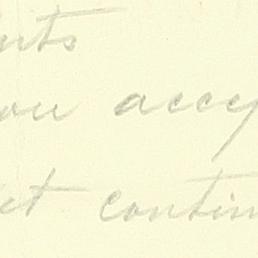 nts
ou accep
et contin